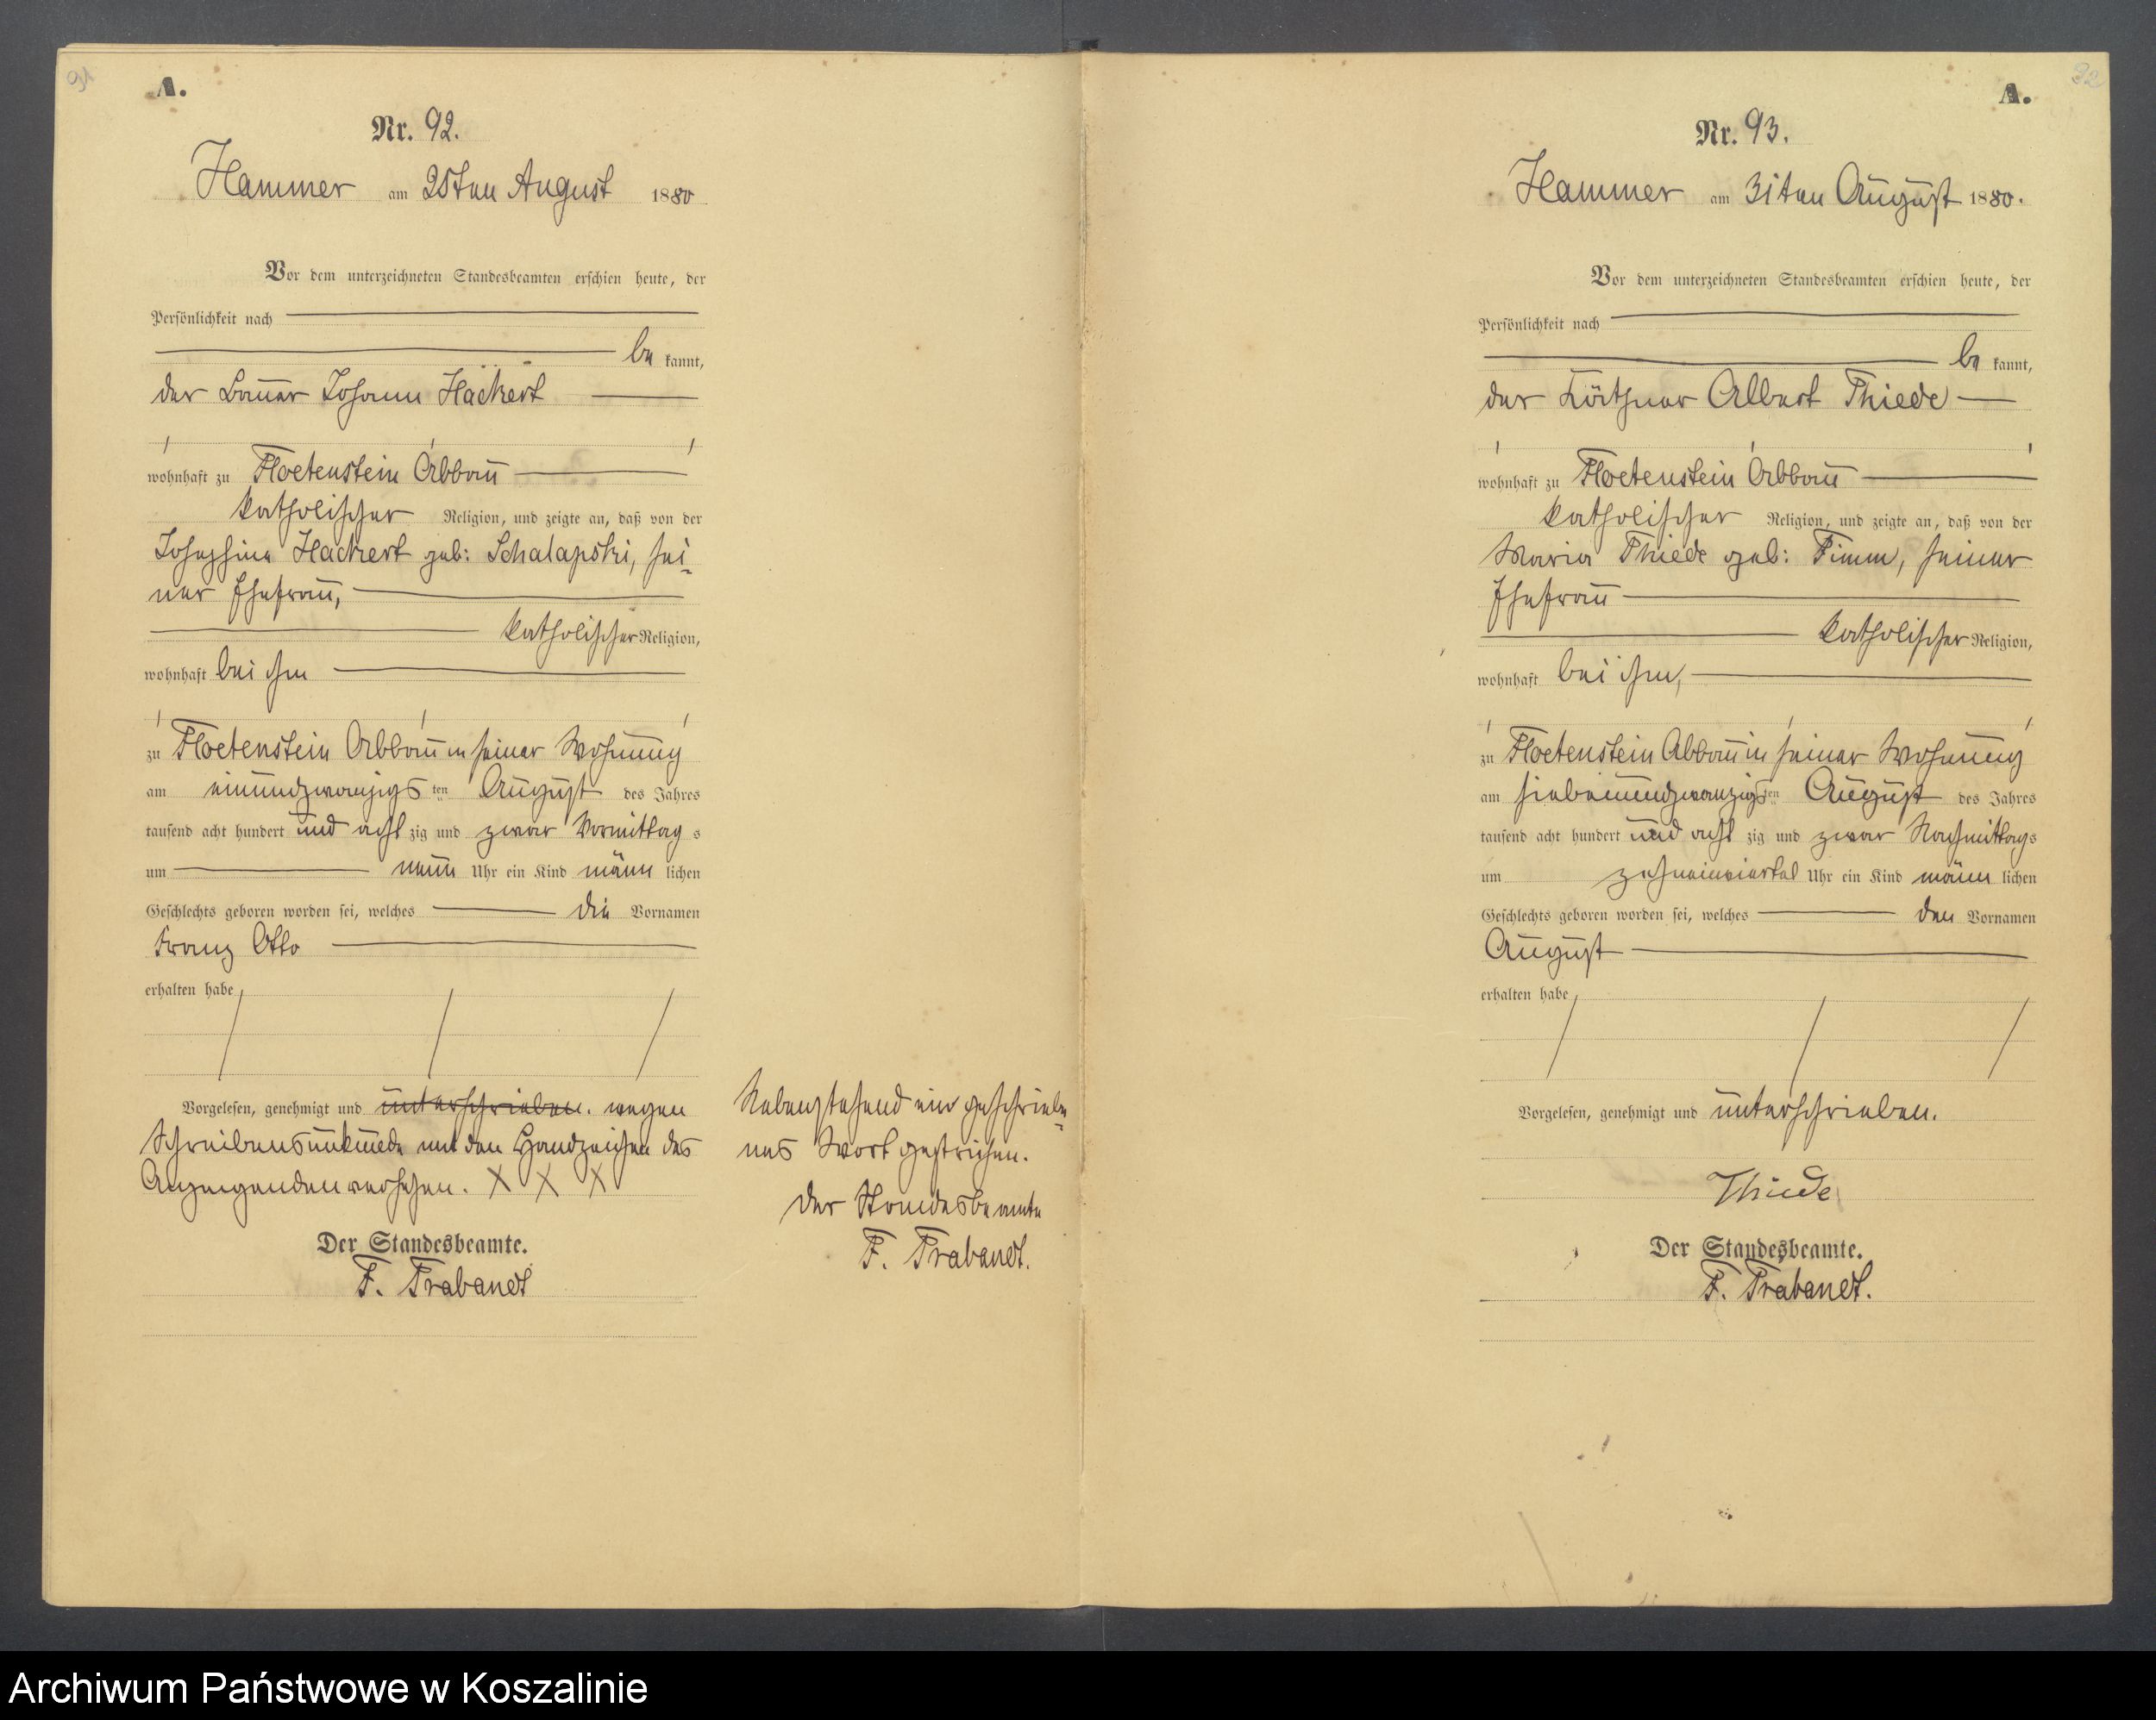 91
A.
Nr. 92.
Hammer am 25ten August 1880
Vor dem unterzeichneten Standesbeamten erschien heute, der
Persönlichkeit nach
be kannt,
der Bauer Johann Häckert
wohnhaft zu Floetenstein Abbau
katholischer Religion, und zeigte an, daß von der
Josephine Hackert geb: Schalapski, sei-
ner Ehefrau,
katholischer Religion,
wohnhaft bei ihm
zu Floetenstein Abbau in seiner Wohnung
am einundzwanzigsten August des Jahres
tausend acht hundert und acht zig und zwar Vormittag s
um neun Uhr ein Kind männ lichen
Geschlechts geboren worden sei, welches die Vornamen
Franz Otto
erhalten habe
Vorgelesen, genehmigt und unterschrieben. wegen
Schreibensunkunde mit den Handzeichen des
Anzeigenden versehen. X X X
Der Standesbeamte.
F. Trabandt
Nebenstehend ein geschriebe-
nes Wort gestrichen.
Der Standesbeamte
F. Trabandt.
92
A.
Nr. 93.
Hammer am 31ten August 1880.
Vor dem unterzeichneten Standesbeamten erschien heute, der
Persönlichkeit nach
be kannt,
der Käthner Albert Thiede
wohnhaft zu Floetenstein Abbau
katholischer Religion, und zeigte an, daß von der
Maria Thiede geb: Fimm, seiner
Ehefrau
katholischer Religion,
wohnhaft bei ihm,
zu Floetenstein Abbau in seiner Wohnung
am siebenundzwanzigsten August des Jahres
tausend acht hundert und acht zig und zwar Nachmittags
um zehneinviertel Uhr ein Kind männ lichen
Geschlechts geboren worden sei, welches den Vornamen
August
erhalten habe
Vorgelesen, genehmigt und unterschrieben.
Thiede
Der Standesbeamte.
F. Trabandt.
Archiwum Państwowe w Koszalinie